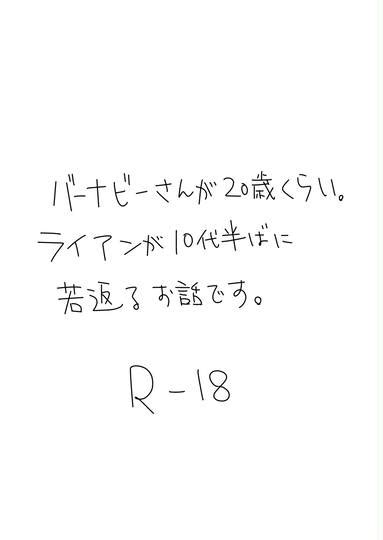 バーナビーさんが20歳くらい。
ライアンが10代半ばに
若返るお話です。
R-18